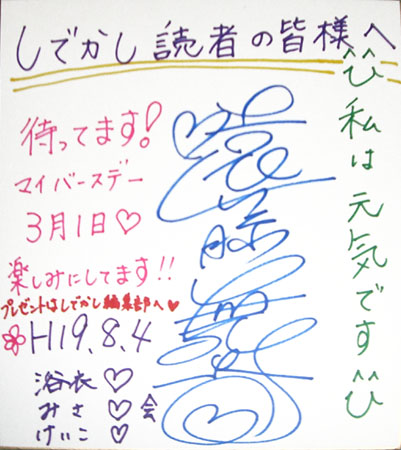 しでかし読者の皆様へ
^^ひ私は元気です^^ひ
待ってます!
マイバースデー
3月1日♡
楽しみにしてます!!
プレゼントはしでかし編集部へ♥
H19.8.4
浴衣♡
みさ♡会
けいこ♡